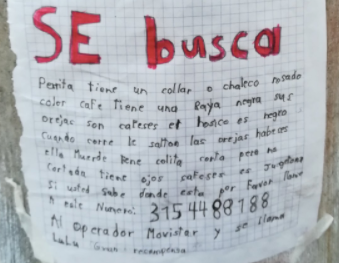 SE busca
Perrita tiene un collar o chaleco rosado
color cafe Tiene una Raya negra sus
orejas son cafeses el hosico es negro
cuando corre le saltan las orejas habeses
ella muerde tiene colita corta pero no
cortada tiene ojos cafeses es juguetona
Si usted sabe donde esta por Favor llame
A este Numero: 3154488188
Al operador Movistar y se llama
Gran recompensa